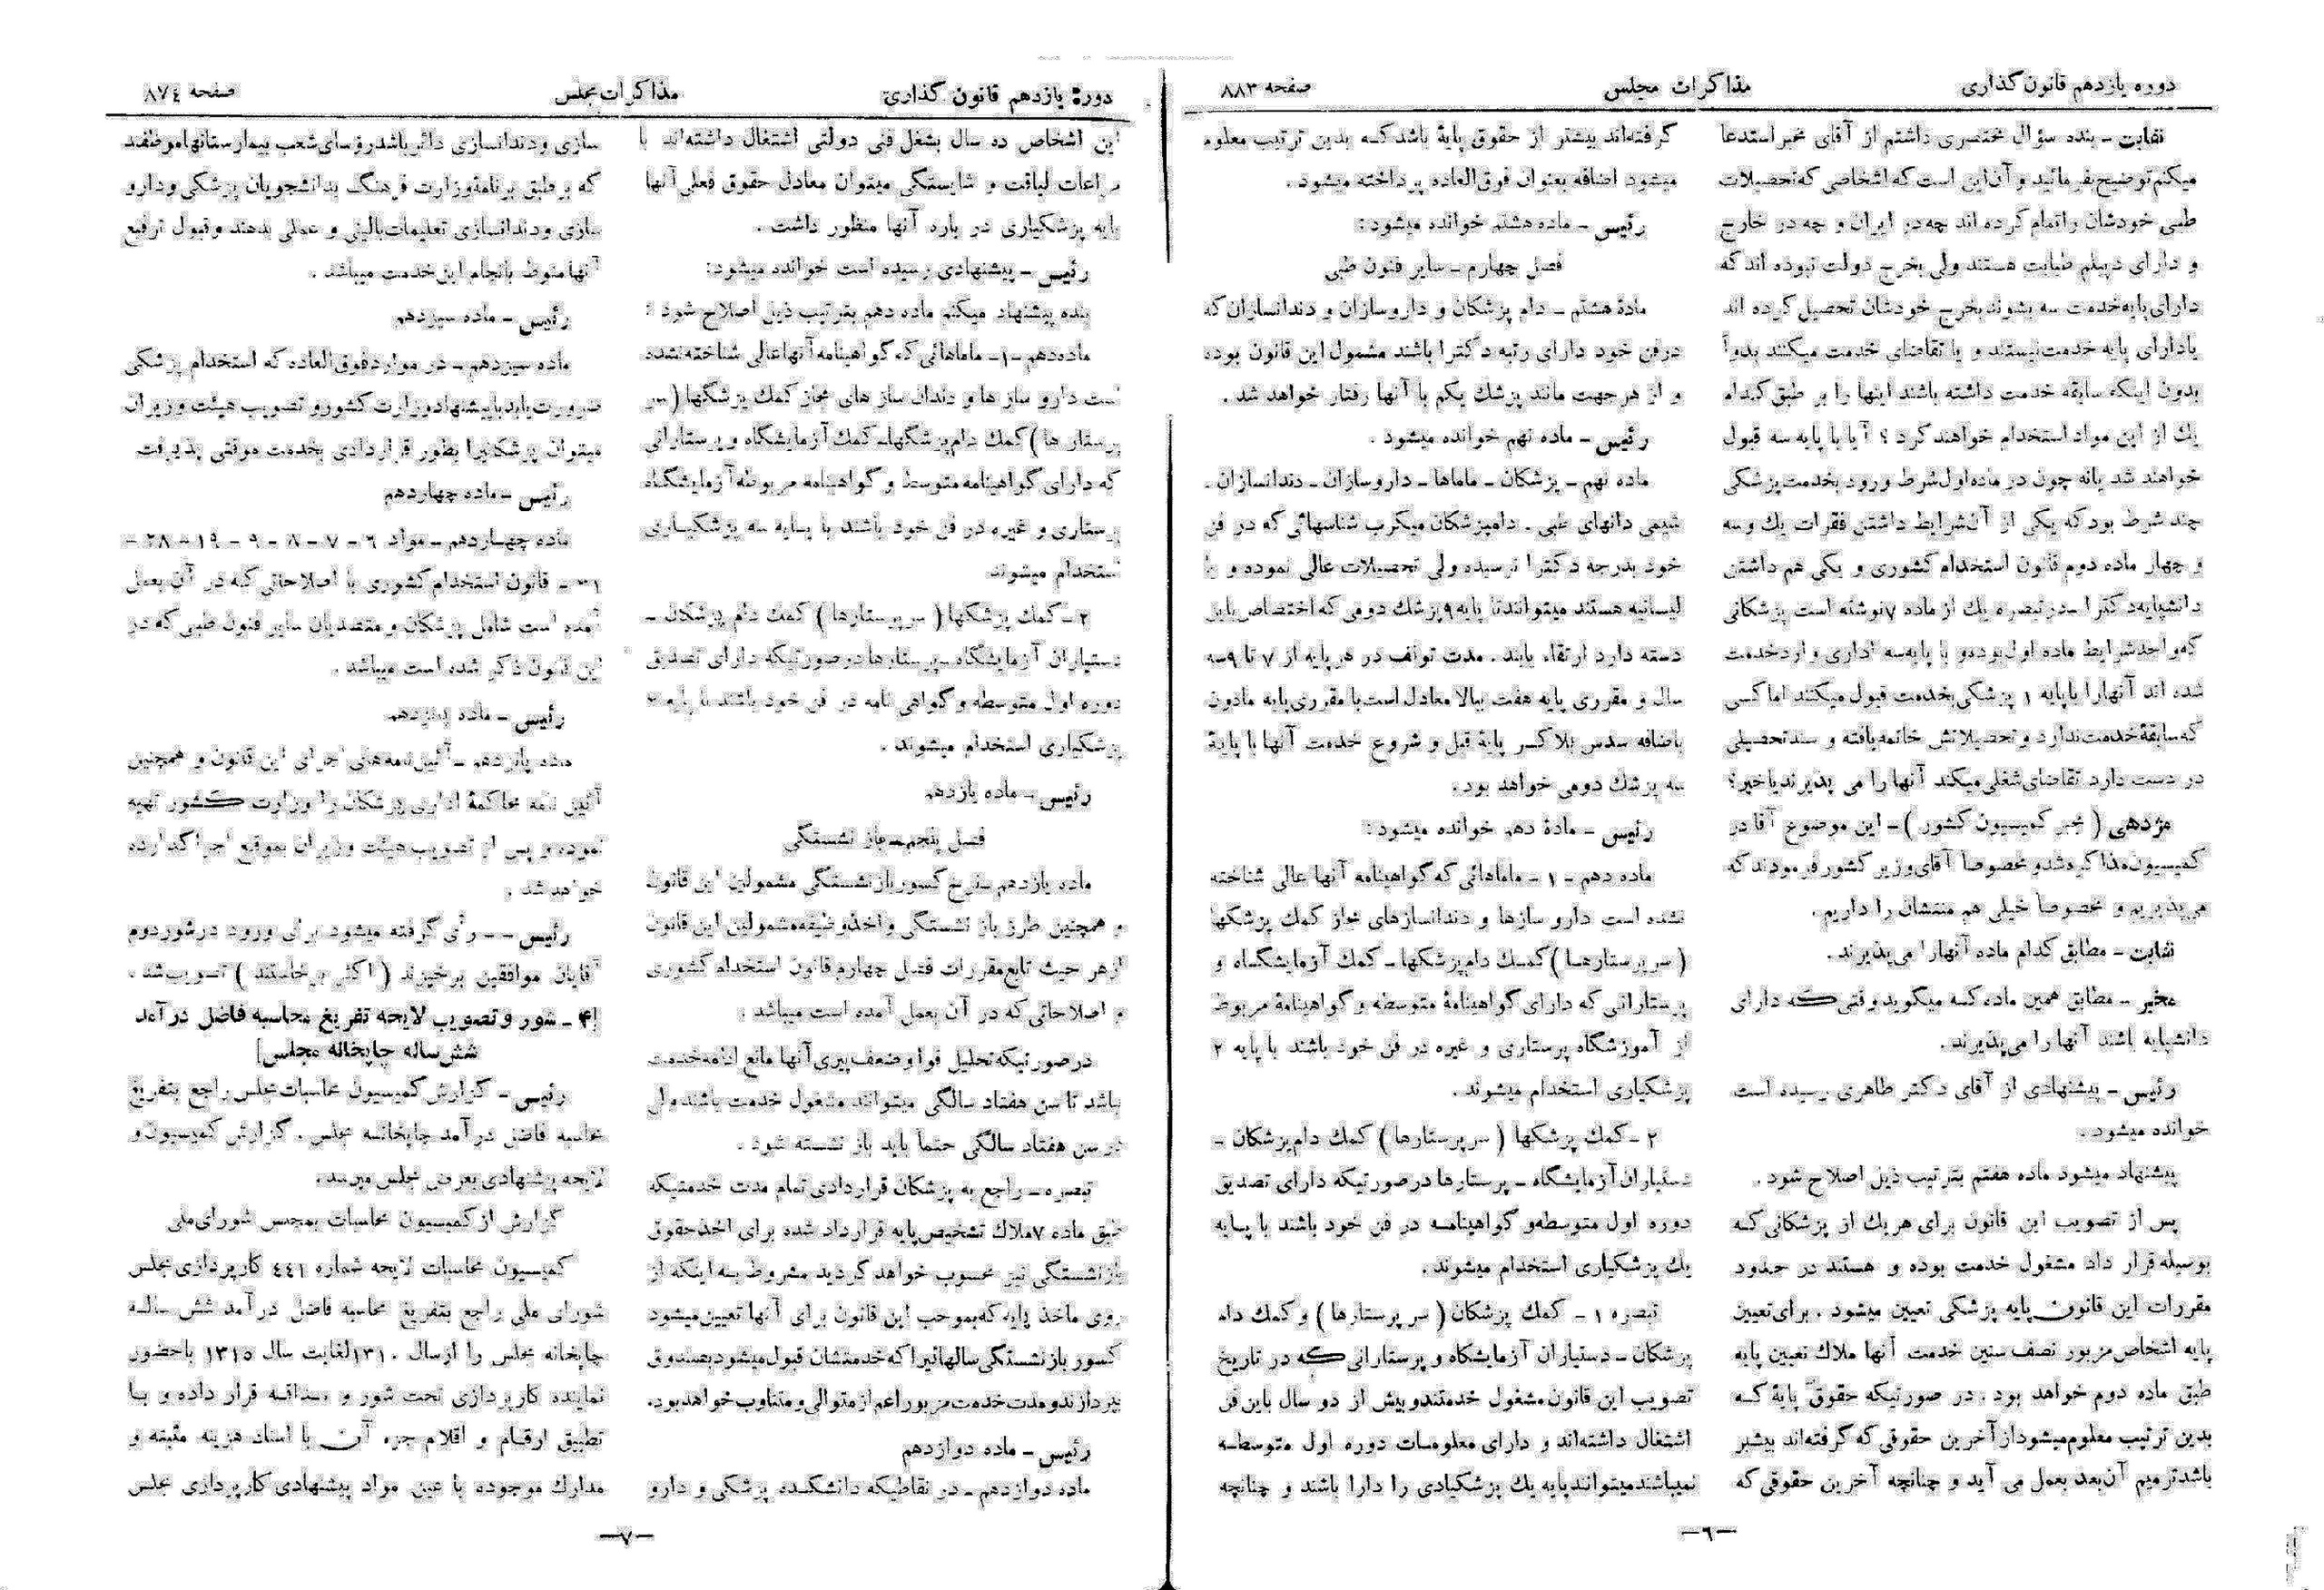 دوره یازدهم قانون گذاری
مذاکرات مجلس
صفحه ۸۸۳
نقابت ـ بنده سؤال مختصری داشتم از آقای مخبر استدعا
میکنم توضیح بفرمائید و آن این است که اشخاصی که تحصیلات
طبی خودشان را تمام کرده اند چه در ایران و چه در خارج
و دارای دیپلم طبابت هستند ولی بخرج دولت نبوده اند که
دارای پایه خدمت سه بشوند بخرج خودشان تحصیل کرده اند
یا دارای پایه خدمت نیستند و یا تقاضای خدمت میکنند بدواً
بدون اینکه سابقه خدمت داشته باشند اینها را بر طبق کدام
یك از این مواد استخدام خواهند کرد ؟ آیا با پایه سه قبول
خواهند شد یا نه چون در ماده اول شرط ورود بخدمت پزشکی
چند شرط بود که یکی از آن شرایط داشتن فقرات یك و سه
و چهار ماده دوم قانون استخدام کشوری و یکی هم داشتن
دانشپایه دکترا ـ در تبصره یك از ماده ۷ نوشته است پزشکانی
که واجد شرایط ماده اول بوده و با پایه سه اداری وارد خدمت
شده اند آنهارا با پایه ۱ پزشکی بخدمت قبول میکنند اما کسی
که سابقه خدمت ندارد و تحصیلاتش خاتمه یافته و سند تحصیلی
در دست دارد تقاضای شغلی میکند آنها را می پذیرند یا خیر؟
مژدهی ( مخبر کمیسیون کشور ) ـ این موضوع آقا در
کمیسیون مذاکره شد و مخصوصاً آقای وزیر کشور فرمودند که
می پذیریم و مخصوصاً خیلی هم منتشان را داریم.
نقابت ـ مطابق کدام ماده آنهارا می پذیرند.
مخبر ـ مطابق همین ماده که میگوید وقتی که دارای
دانشپایه باشند آنها را می پذیرند.
رئیس ـ پیشنهادی از آقای دکتر طاهری رسیده است
خوانده میشود.
پیشنهاد میشود ماده هفتم بترتیب ذیل اصلاح شود .
پس از تصویب این قانون برای هر یك از پزشکانی که
بوسیله قرار داد مشغول خدمت بوده و هستند در حدود
مقررات این قانون پایه پزشکی تعیین میشود . برای تعیین
پایه اشخاص مزبور نصف سنین خدمت آنها ملاك تعیین پایه
طبق ماده دوم خواهد بود . در صورتیکه حقوق پایۀ که
بدین ترتیب معلوم میشود از آخرین حقوقی که گرفته اند بیشتر
باشد ترمیم آن بعد بعمل می آید و چنانچه آخرین حقوقی که
گرفته اند بیشتر از حقوق پایۀ باشد که بدین ترتیب معلوم
میشود اضافه بعنوان فوق العاده پرداخته میشود .
رئیس ـ ماده هشتم خوانده میشود:
فصل چهارم ـ سایر فنون طبی
مادۀ هشتم ـ دام پزشکان و داروسازان و دندانسازان که
در فن خود دارای رتبه دکترا باشند مشمول این قانون بوده
و از هر جهت مانند پزشك یکم با آنها رفتار خواهد شد .
رئیس ـ ماده نهم خوانده میشود .
ماده نهم ـ پزشکان ـ ماماها ـ داروسازان ـ دندانسازان ـ
شیمی دانهای طبی . دامپزشکان میکرب شناسهائی که در فن
خود بدرجه دکترا نرسیده ولی تحصیلات عالی نموده و یا
لیسانسیه هستند میتوانند تا پایه ۹ پزشك دومی که اختصاص باین
دسته دارد ارتقاء یابند . مدت توقف در هر پایه از ۷ تا ۹ سه
سال و مقرری پایه هفت ببالا معادل است با مقرری پایه مادون
باضافه سدس بلاکسر پایۀ قبل و شروع خدمت آنها با پایۀ
سه پزشك دومی خواهد بود.
رئیس ـ مادۀ دهم خوانده میشود :
ماده دهم ـ ۱ ـ ماماهائی که گواهینامه آنها عالی شناخته
نشده است دارو سازها و دندانسازهای مجاز کمك پزشگها
(سر پرستارها) کمك دام پزشکها ـ کمك آزمایشگاه و
پرستارانی که دارای گواهینامۀ متوسطه و گواهینامۀ مربوط
از آموزشگاه پرستاری و غیره در فن خود باشند با پایه ۲
پزشکیاری استخدام میشوند .
۲ ـ کمك پزشکها ( سر پرستارها ) کمك دام پزشکان ـ
دستیاران آزمایشگاه ـ پرستارها در صورتیکه دارای تصدیق
دوره اول متوسطه و گواهینامه در فن خود باشند با پایه
یك پزشکیاری استخدام میشوند.
تبصره ۱ ـ کمك پزشکان ( سر پرستارها ) و کمك دام
پزشکان ـ دستیاران آزمایشگاه و پرستارانی که در تاریخ
تصویب این قانون مشغول خدمتند و بیش از دو سال باین فن
اشتغال داشته اند و دارای معلومات دوره اول متوسطه
نمیباشند میتوانند پایه یك پزشکیاری را دارا باشند و چنانچه
ـ۶ـ
دوره یازدهم قانون گذاری
مذاکرات مجلس
صفحه ۸۷٤
این اشخاص ده سال بشغل فنی دولتی اشتغال داشته اند با
مراعات لیاقت و شایستگی میتوان معادل حقوق فعلی آنها
پایه پزشکیاری در باره آنها منظور داشت .
رئیس ـ پیشنهادی رسیده است خوانده میشود:
بنده پیشنهاد میکنم ماده دهم بترتیب ذیل اصلاح شود :
ماده دهم ـ۱ـ ماماهائی که گواهینامه آنها عالی شناخته نشده
است دارو ساز ها و دندان ساز های مجاز کمك پزشگها (سر
پرستار ها) کمك دام پزشگها ـ کمك آزمایشگاه و پرستارانی
که دارای گواهینامه متوسطه و گواهینامه مربوطه آزمایشگاه
پرستاری و غیره در فن خود باشند با پایه سه پزشکیاری
استخدام میشوند
۲ـ کمك پزشکها ( سر پرستارها ) کمك دام پزشکان ـ
دستیاران آزمایشگاه ـ پرستارها در صورتیکه دارای تصدیق
دوره اول متوسطه و گواهی نامه در فن خود باشند با پایه ۲
پزشکیاری استخدام میشوند .
رئیس ـ ماده یازدهم
فصل پنجم ـ باز نشستگی
ماده یازدهم ـ نرخ کسور بازنشستگی مشمولین این قانون
و همچنین طرز باز نشستگی و اخذ وظیفه مشمولین این قانون
از هر حیث تابع مقررات فصل چهارم قانون استخدام کشوری
و اصلاحاتی که در آن بعمل آمده است میباشد :
در صورتیکه تحلیل قوا و ضعف پیری آنها مانع ادامه خدمت
باشد تا سن هفتاد سالگی میتوانند مشغول خدمت باشند ولی
در سن هفتاد سالگی حتماً باید باز نشسته شود .
تبصره ـ راجع به پزشکان قراردادی تمام مدت خدمتیکه
طبق ماده ۷ ملاك تشخیص پایه قرارداد شده برای اخذ حقوق
بازنشستگی نیز محسوب خواهد گردید مشروط به اینکه از
روی ماخذ پایه که بموجب این قانون برای آنها تعیین میشود
کسور بازنشستگی سالهائیرا که خدمتشان قبول میشود بصندوق
بپردازند و مدت خدمت مزبور اعم از متوالی و متناوب خواهد بود.
رئیس ـ ماده دوازدهم
ماده دوازدهم ـ در نقاطیکه دانشکده پزشکی و دارو
سازی و دندانسازی دائر باشد رؤسای شعب بیمارستانها موظفند
که بر طبق برنامه وزارت فرهنگ بدانشجویان پزشکی و دارو
سازی و دندانسازی تعلیمات بالینی و عملی بدهند و قبول ترفیع
آنها منوط بانجام این خدمت میباشد .
رئیس ـ ماده سیزدهم
ماده سیزدهم ـ در موارد فوق العاده که استخدام پزشکی
ضرورت یابد با پیشنهاد وزارت کشور و تصویب هیئت وزیران
میتوان پزشکانیرا بطور قراردادی بخدمت موقتی پذیرفت
رئیس ـ ماده چهاردهم
ماده چهاردهم ـ مواد ۶ ـ ۷ ـ ۸ ـ ۹ ـ ۱۹ ـ ۲۸ ـ
ـ قانون استخدام کشوری با اصلاحاتی که در آن بعمل
آمده است شامل پزشکان و متصدیان سایر فنون طبی که در
این قانون ذکر شده است میباشد .
رئیس ـ ماده پانزدهم
ماده پانزدهم ـ آئین نامه های اجرای این قانون و همچنین
آئین نامه محاکمۀ اداری پزشکان را وزارت کشور تهیه
نموده و پس از تصویب هیئت وزیران بموقع اجرا گذارده
خواهد شد .
رئیس ـ ـ رأی گرفته میشود برای ورود در شور دوم
آقایان موافقین برخیزند ( اکثر برخاستند ) تصویب شد .
[۴ ـ شور و تصویب لایحه تفریغ محاسبه فاضل درآمد
شش ساله چاپخانه مجلس]
رئیس ـ گزارش کمیسیون محاسبات مجلس راجع بتفریغ
محاسبه فاضل درآمد چاپخانه مجلس . گزارش کمیسیون و
لایحه پیشنهادی بعرض مجلس میرسد.
گزارش از کمیسیون محاسبات بمجلس شورای ملی
کمیسیون محاسبات لایحه شماره ٤٤۱ کارپردازی مجلس
شورای ملی راجع بتفریغ محاسبه فاضل درآمد شش ساله
چاپخانه مجلس را از سال ۱۳۱۰ لغایت سال ۱۳۱٥ باحضور
نماینده کارپردازی تحت شور و مداقه قرار داده و با
تطبیق ارقام و اقلام جزء آن با اسناد هزینه مثبته و
مدارك موجوده با عین مواد پیشنهادی کارپردازی مجلس
ـ۷ـ